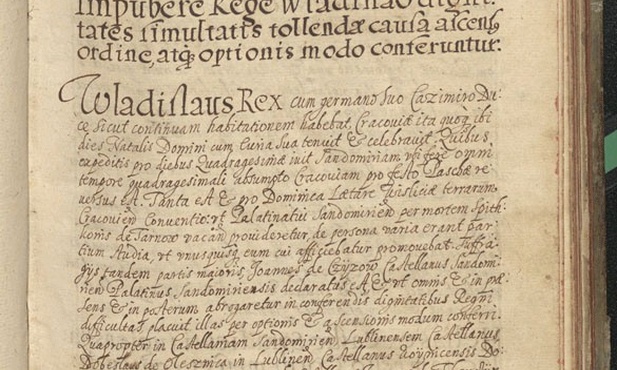 Impubere Rege Wladislao digni-
tates simultatis tollendæ causa ascens9
ordine, atq; optionis modo conferuntur.
Wladislaus Rex cum germano suo Cazimiro Du-
ce sicut continuam habitationem habebat Cracoviæ ita quoq; ibi
dies Natalis Domini cum Curia sua tenuit & celebravit. Quibus
expeditis pro diebus Quadragesimæ ivit Sandomiriam, ubi fere omni
tempore quadragesimali absumpto Cracoviam pro festo Paschæ re-
versus est. Tanta est & pro Dominica Lætare terrarum
Cracovien Conventio: vt Palatinatui Sandomirien per mortem Spith-
konis de Tarnow vacan provideretur, de persona varia erant par-
tium studia, vt vnusquisq; eum cui afficiebatur promovebat. Suffra-
gijs tandem partis maioris, Joannes de Czyzow Castellanus Sandomi-
rien Palatinus Sandomiriensis declaratus est. & vt omnis & in præ-
sens & in posterum abrogaretur in conferendis dignitatibus Regni
difficultas placuit illas per optionis & ascensionis modum conferri.
Quapropter in Castellaniam Sandomirien, Lublinensem Castellanus
Dobeslaus de Olesznica in Lublinen Castellanus Do-